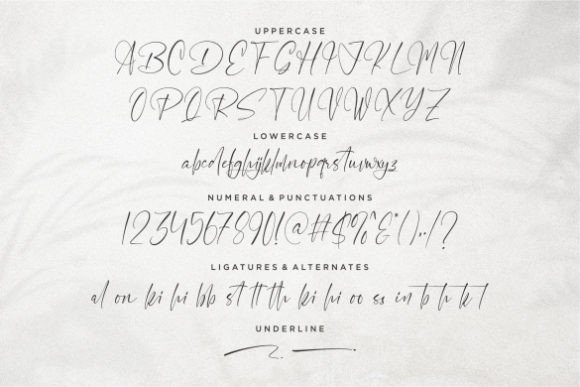 UPPERCASE
ABCDEFGHIJKLMN
OPQRSTUVWXYZ
LOWERCASE
abcdefghijklmnopqrstuvwxyz
NUMERAL & PUNCTUATIONS
1234567890!@#$%^&*().,/?
LIGATURES & ALTERNATES
al on ki hi bb st tt th ki hi oo ss in to h t k l
UNDERLINE